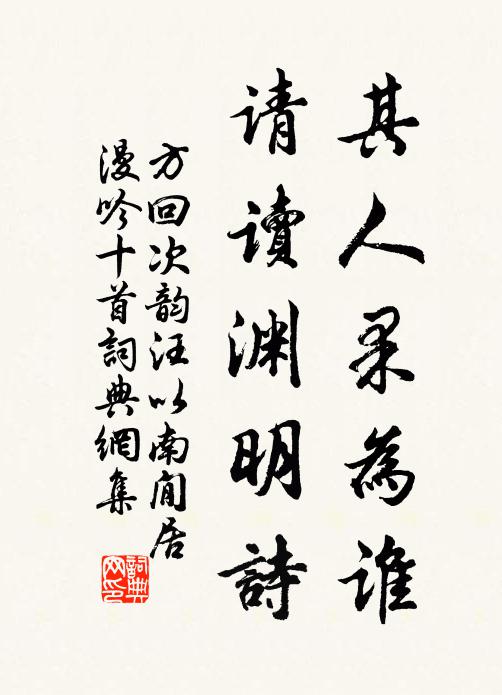 其人果為誰
请讀渊明詩
方回次韵汪以南閒居
漫吟十首詞典網集
詞典網印